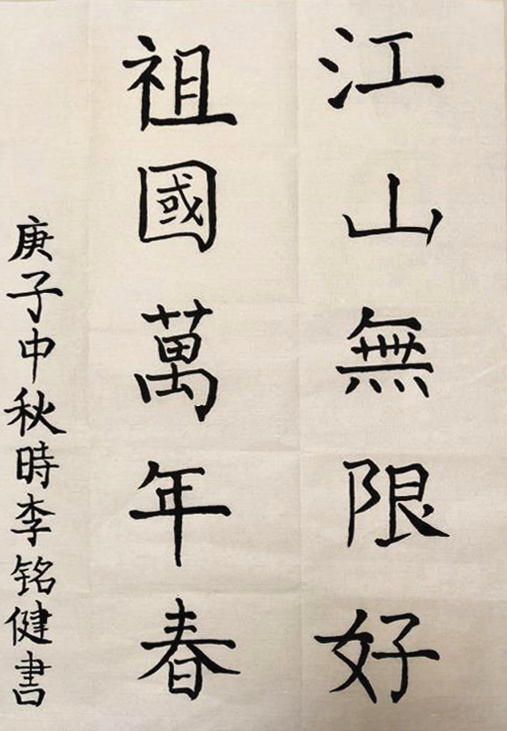 江山無限好
祖國萬年春
庚子中秋時李铭健書